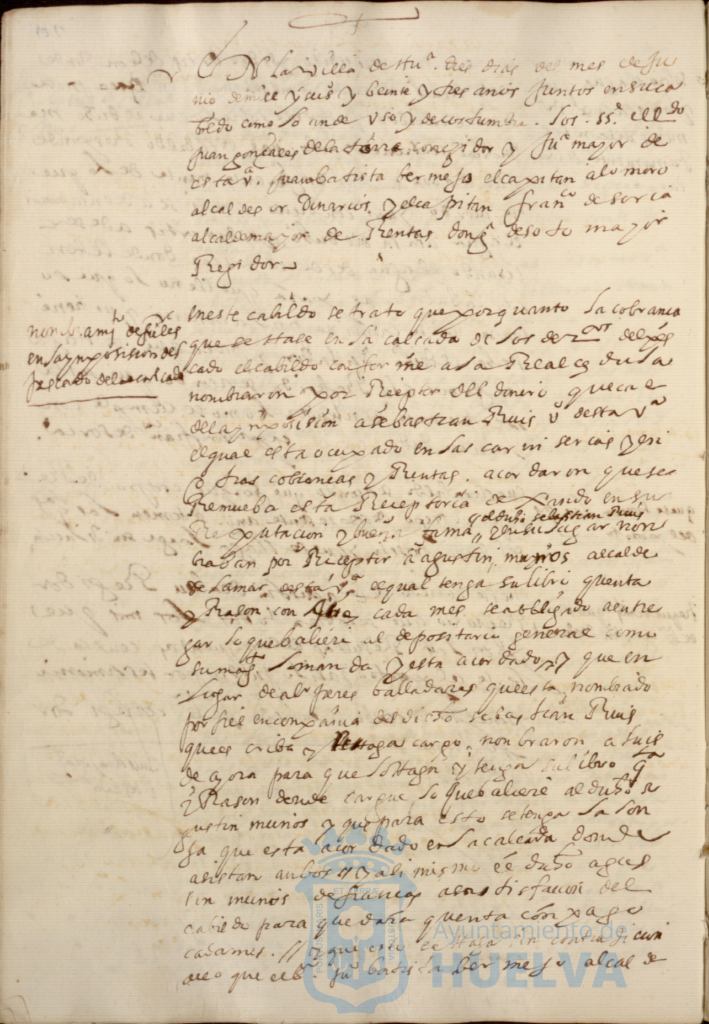 En la villa de Huª. tres dias del mes de Ju
nio de mill y seis y beinte y tres anos Juntos en su ca
bildo como lo an de uso y de costumbre. los ss.es el Ldo
Juan gonçales de la torre corregidor y Juª mayor de
esta vª. Juan batista bermejo el capitan
alcaldes ordinarios. y el capitan franco de soria
alcalde mayor de Rentas don gº de soto mayor
Regidor
nombramjto de fieles
en la ynposision del
pescado de la calçada
en este cabildo se trato que por quanto la cobranca
que se hase en la calcada de los del pes
cado el cabildo conforme a la Real cedula
nombraron por Receptor del dinero que cae
de la ynposision a sebastian Ruis vº desta vª
el qual esta ocupado en las carniserias y en
otras cobrancas y Rentas. acordaron que se
Remueba esta Receptoria dexando en su
Reputacion y buena fama al dicho sebastian Ruis y en su lugar non
braban por Receptor a agustin munos alcalde
de la mar desta vª el qual tenga su libro quenta
y Rason con que cada mes sea obligado a entre
gar lo que baliere al depositario general como
su magd lo manda y esta acordado y que en
lugar de alº peres balladares que esta nombrado
por fiel en conpania del dicho sebastian Ruis
que escriba y haga cargo. nonbraron a luis
de ayora para que lo haga y tenga su libro qta
y Rason donde cargue lo que baliere al dicho a
gustin munos y que para esto se tenga la lon
ja que esta acordado en la calcada donde
asistan anbos // y ali mismo el dicho agus
tin munos de fiancas a satisfacion del
cabildo para que dara quenta con pago
cada mes. // y que esto se haga sin contradicion
Juº batista bermejo alcalde
Ayuntamiento de
HUELVA